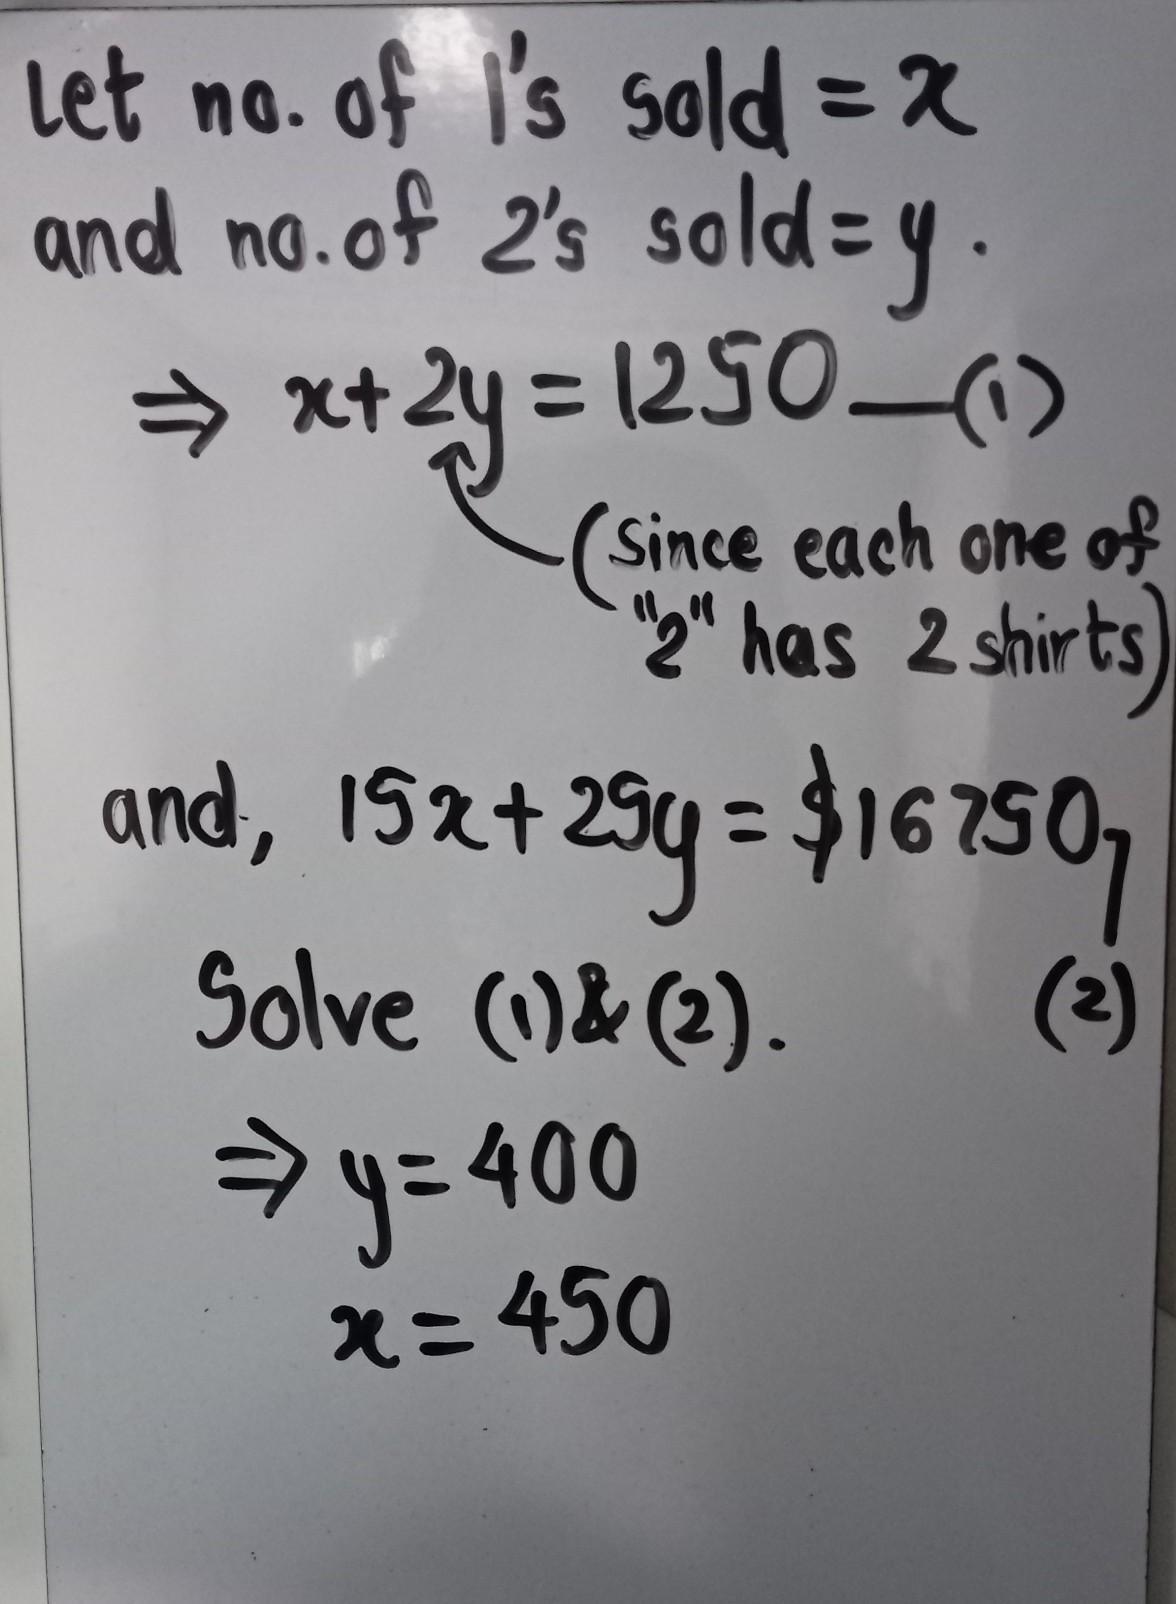 Let no. of 1's sold = x
and no. of 2's sold = y.
⇒ x + 2y = 1250 —(1)
(since each one of
"2" has 2 shirts)
and, 15x + 25y = $16750,
Solve (1) & (2). (2)
⇒ y = 400
x = 450